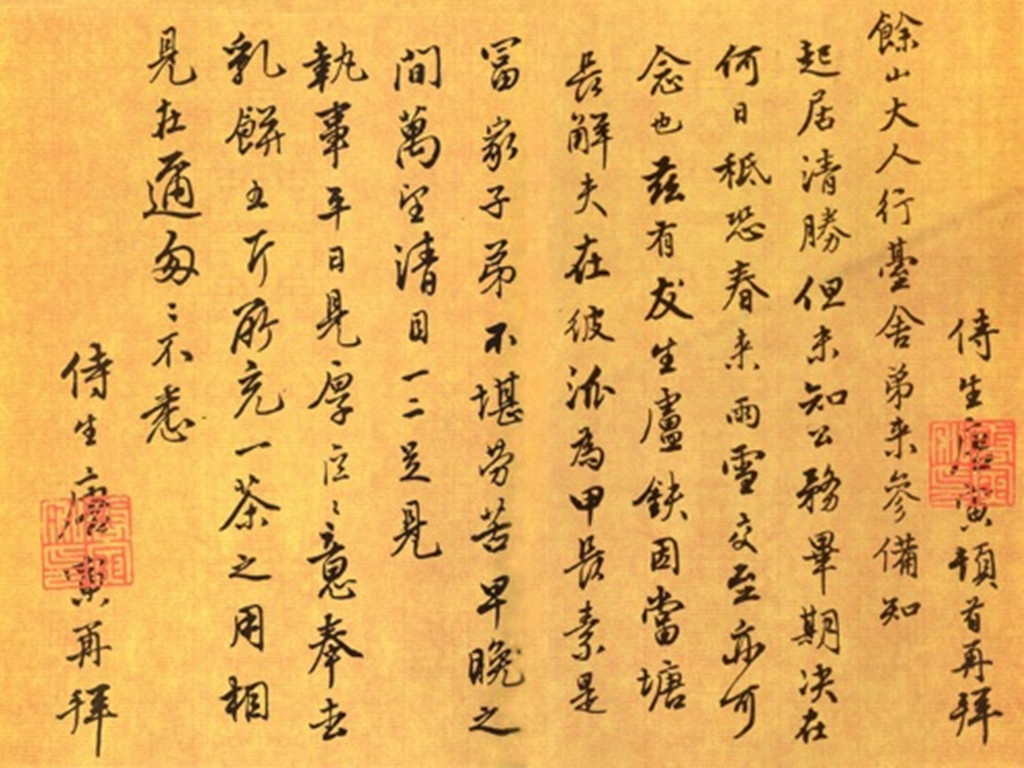 侍生唐寅頓首再拜
餘山大人行臺舍弟来參備知
起居清勝但未知公務畢期决在
何日秪恐春来雨雪交至亦可
念也兹有友生盧鈇因當塘
長解夫在彼泒為甲長素是
富家子弟不堪劳苦早晚之
間萬望清目一二足見
執事平日見厚意奉去
乳餅五斤聊充一茶之用相
見在邇匆〻不悉
侍生唐寅再拜